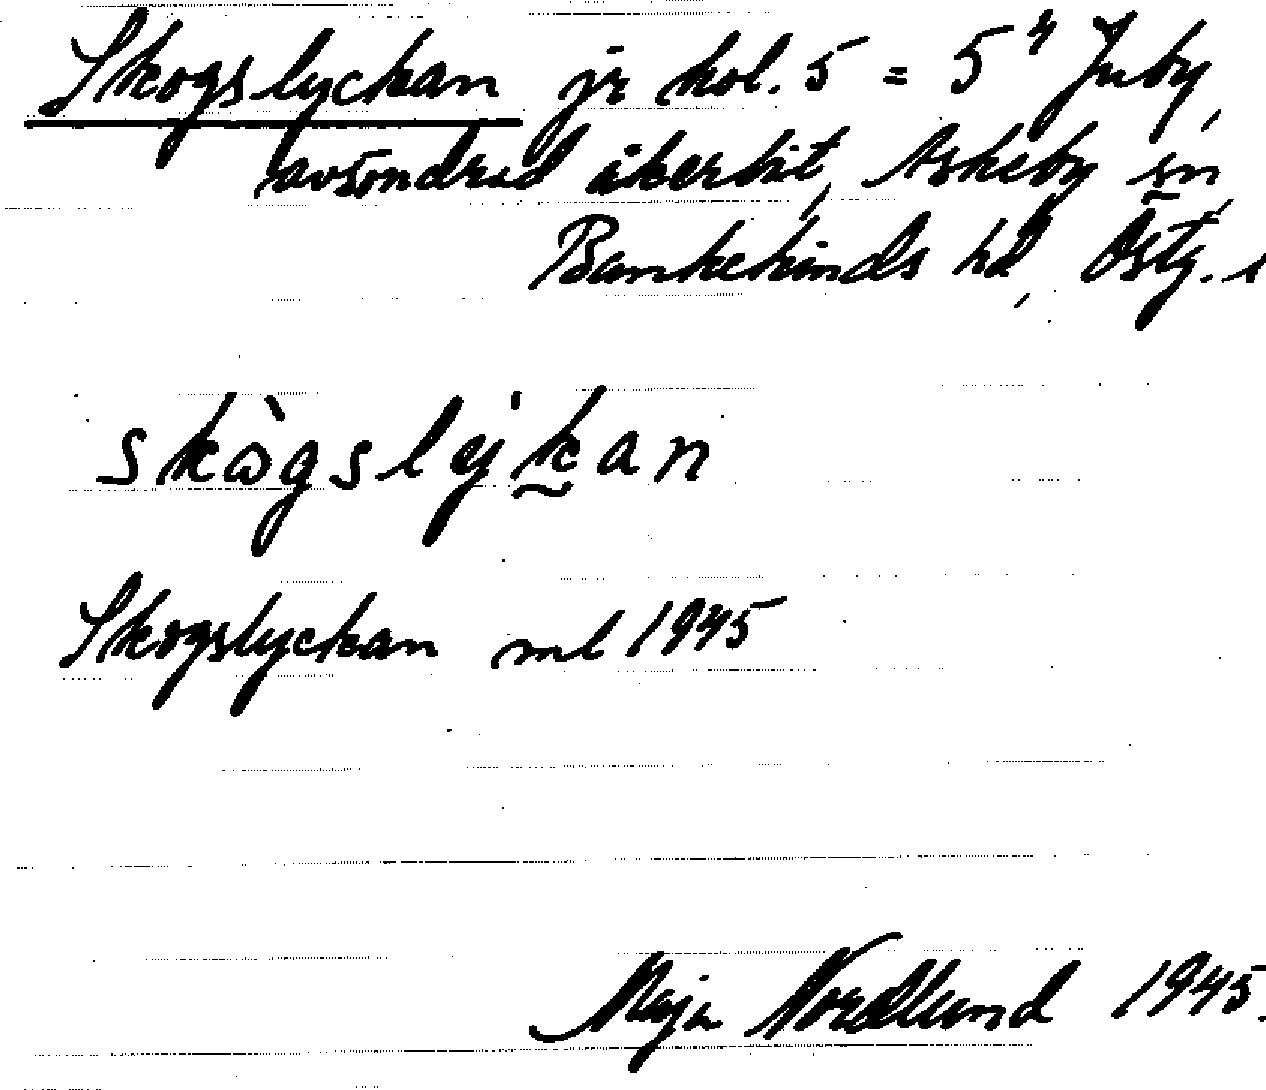 Skogslyckan jr kol. 5 = 5⁴ Juby,
avsöndrad åkerbit, Askeby sn,
Bankekinds hd, Östg. l
skògslykan
Skogslyckan ml 1945
Maja Nordlund 1945.